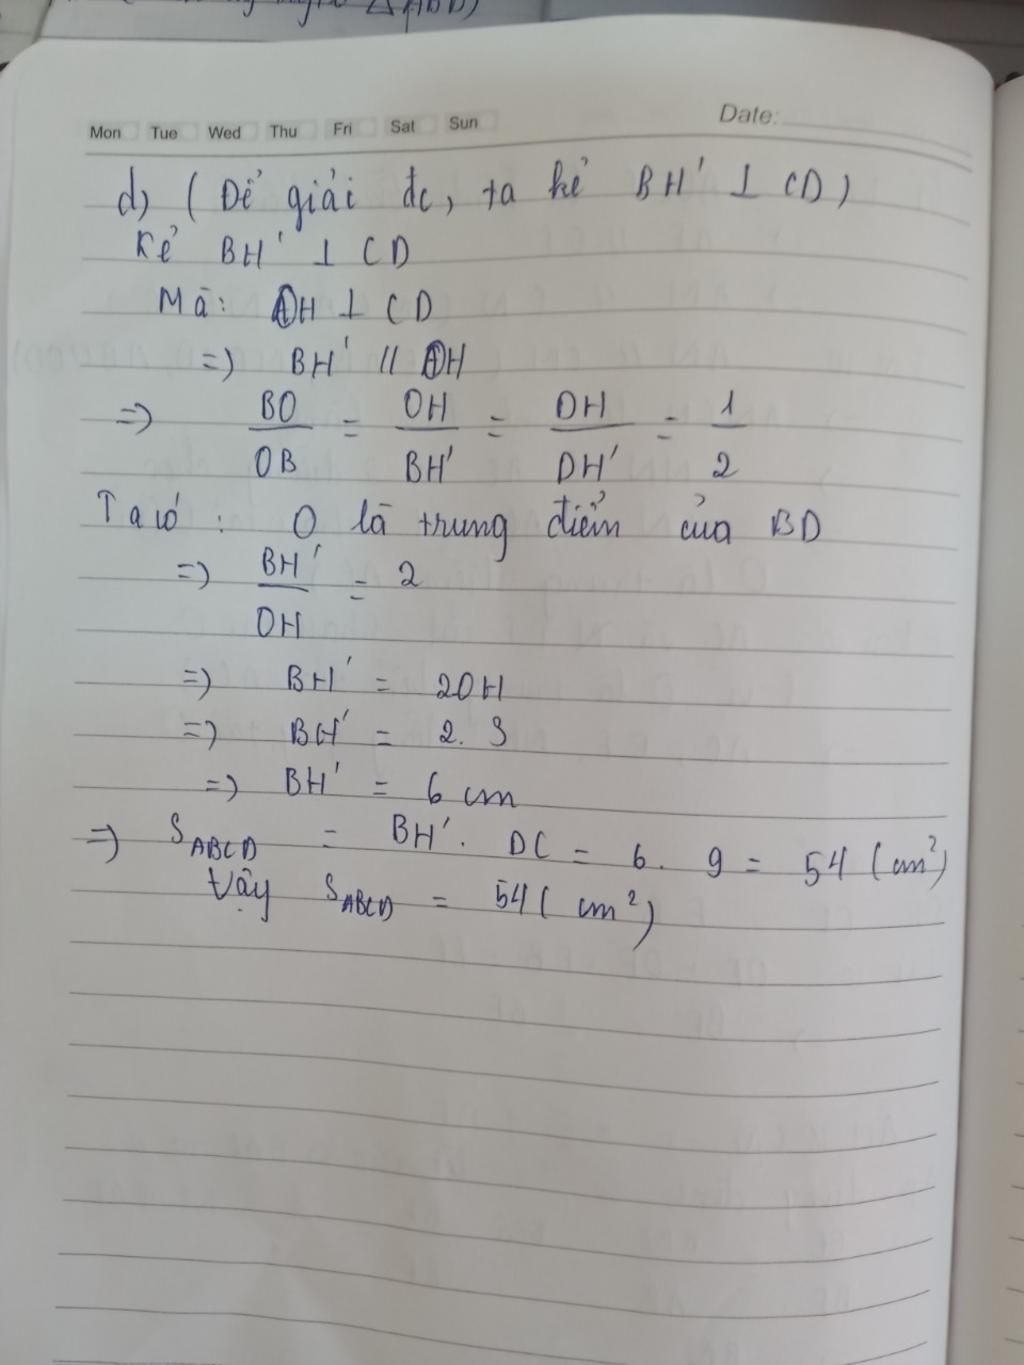 △ABD)
Mon Tue Wed Thu Fri Sat Sun Date:
d) ( Để giải đc, ta kẻ BH' ⊥ CD )
Kẻ BH' ⊥ CD
Mà: OH ⊥ CD
=) BH' // OH
=) BO/OB = OH/BH' = DH/DH' = 1/2
Ta có : O là trung điểm của BD
=) BH'/OH = 2
=) BH' = 2OH
=) BH' = 2. 3
=) BH' = 6 cm
=) S ABCD = BH'. DC = 6. 9 = 54 (cm²)
Vậy S ABCD = 54 ( cm²)